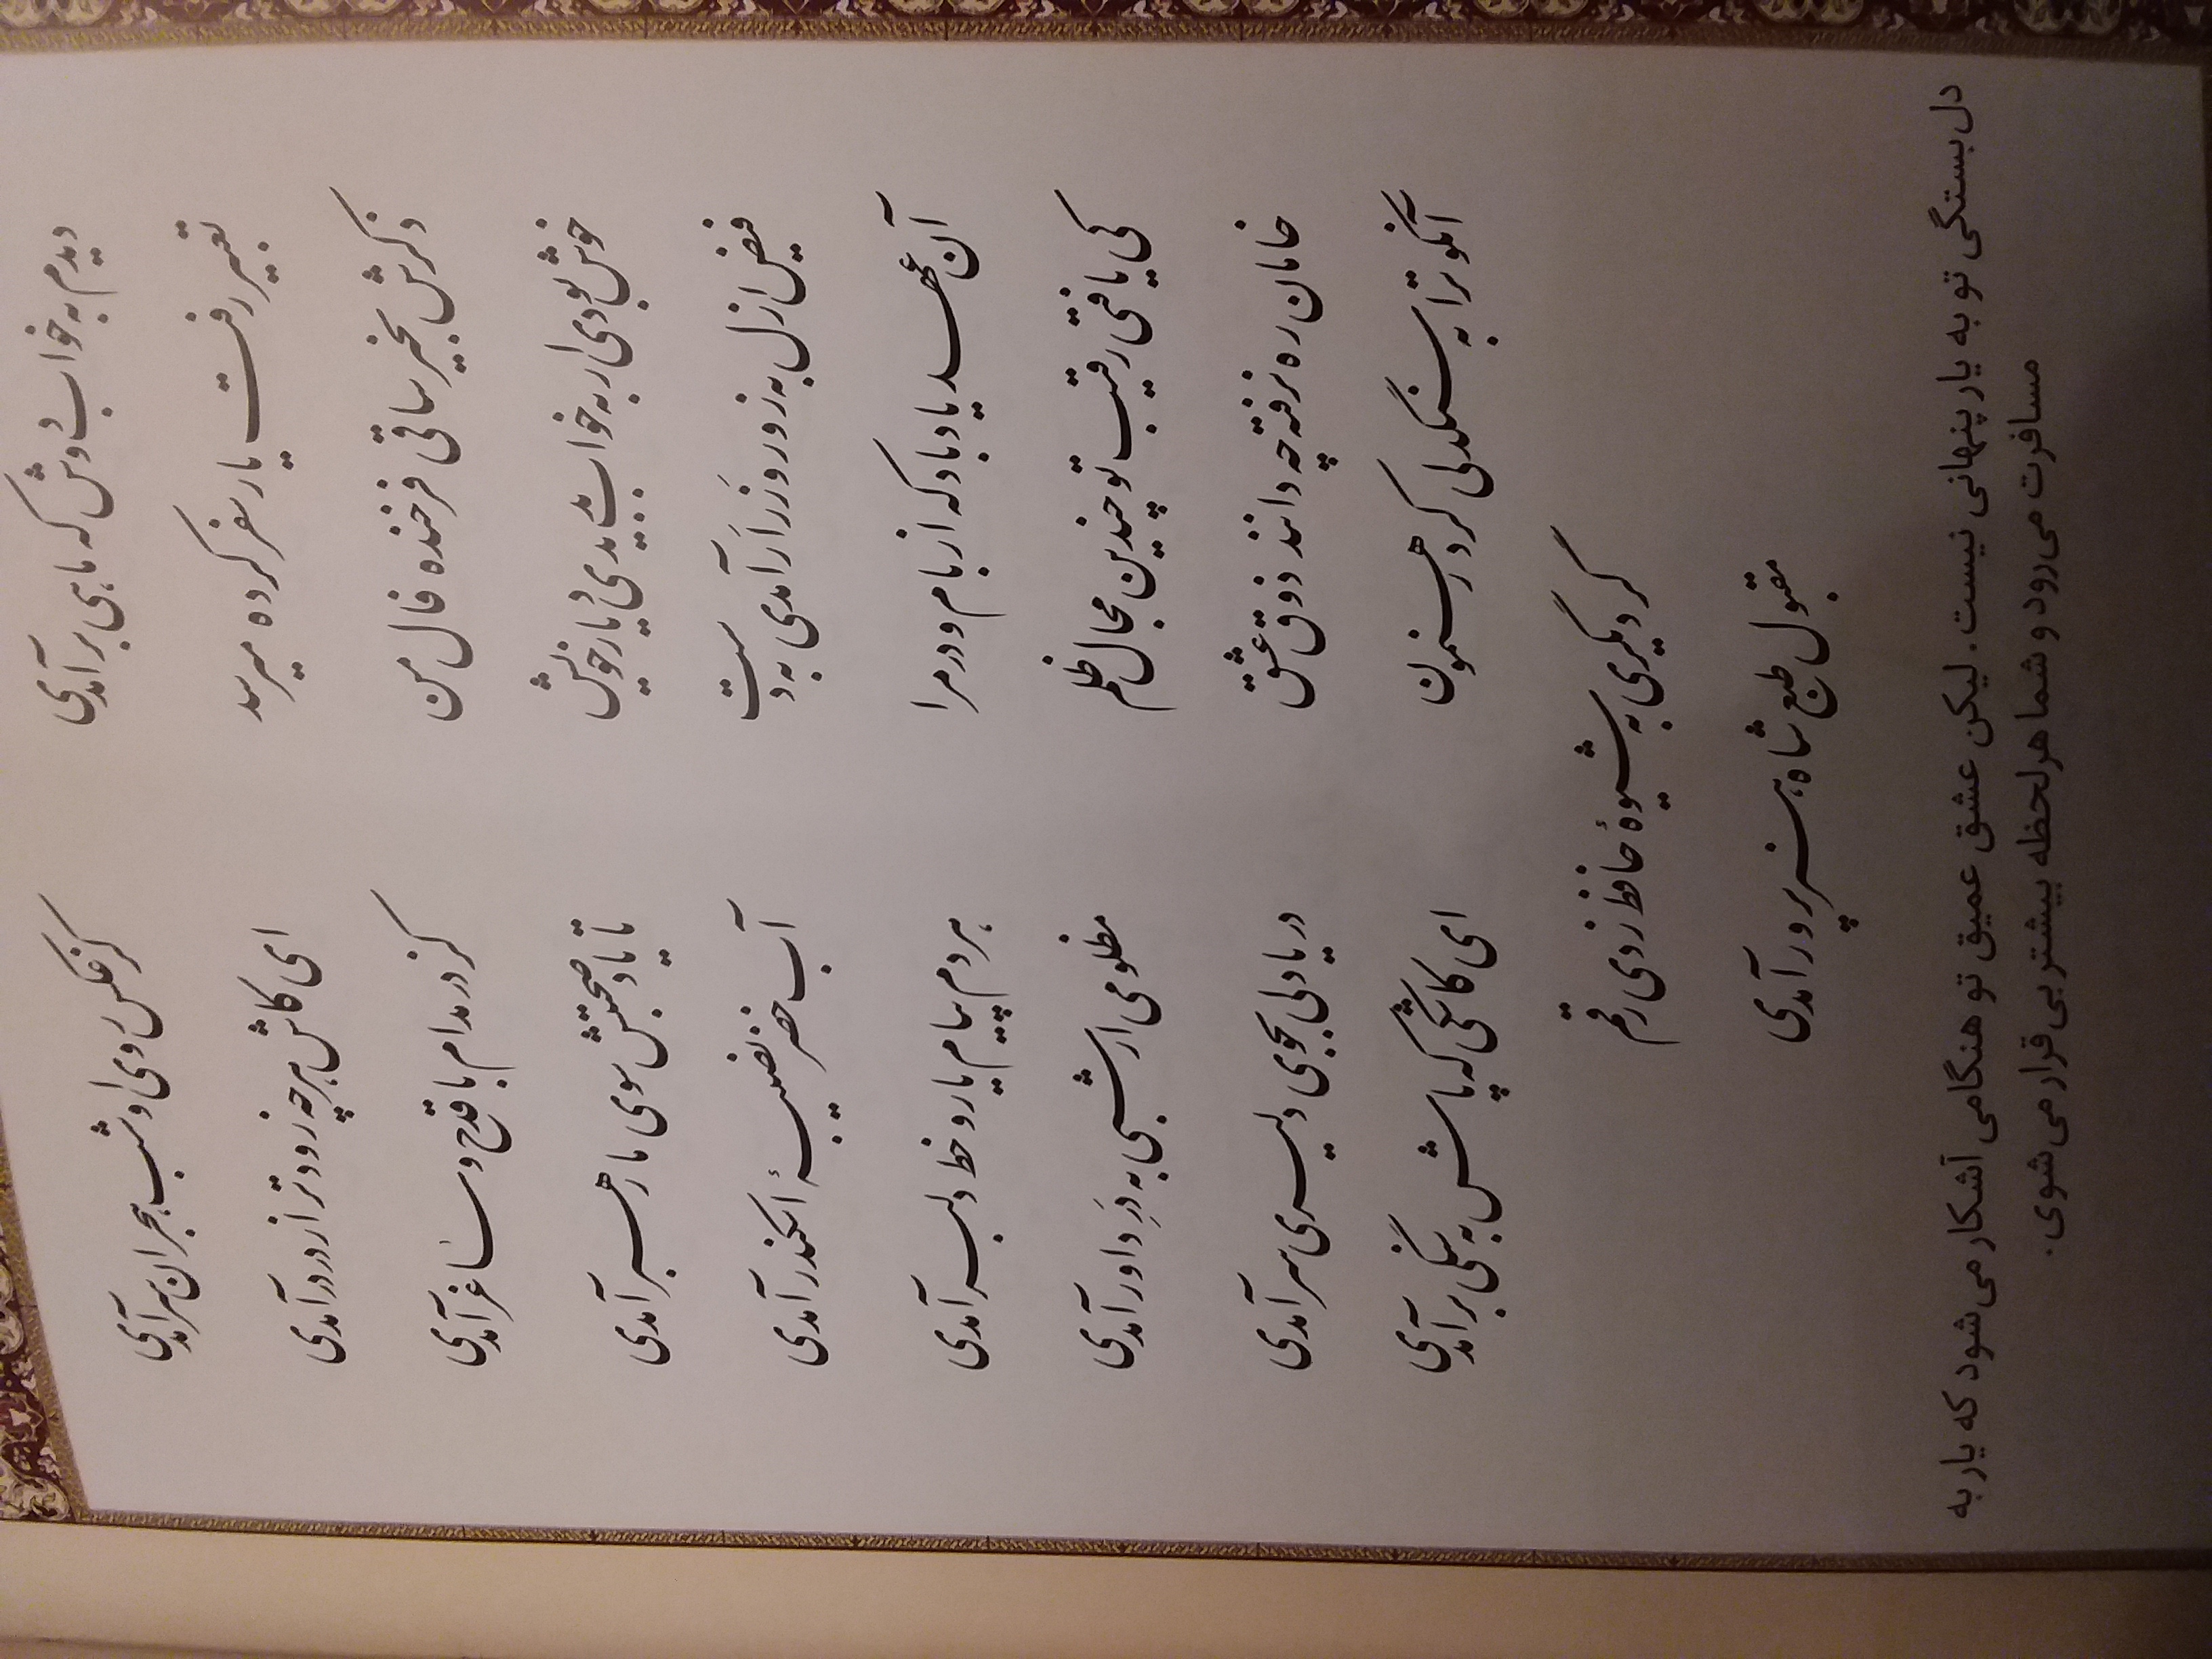 دیدم به خواب دوش که ماهی برآمدی
کز عکس روی او شب هجران سرآمدی
تعبیر رفت یار سفر کرده میرسد
ای کاش هر چه زودتر از در درآمدی
ذکرش بخیر ساقی فرخنده فال من
کز در مدام با قدح و ساغر آمدی
خوش بودی ار به خواب بدیدی دیار خویش
تا یاد صحبتش سوی ما رهبر آمدی
فیض ازل به زور و زر ار آمدی به دست
آب خضر نصیبهٔ اسکندر آمدی
آن عهد یاد باد که از بام و در مرا
هر دم پیام یار و خط دلبر آمدی
کی یافتی رقیب تو چندین مجال ظلم
مظلومی ار شبی به درِ داور آمدی
خامان ره نرفته چه دانند ذوق عشق
دریادلی بجوی دلیری سرآمدی
آنکو ترا به سنگدلی کرد رهنمون
ای کاشکی که پاش به سنگی برآمدی
گر دیگری به شیوهٔ حافظ زدی رقم
مقبول طبع شاه هنرپرور آمدی
دل بستگی تو به یار پنهانی نیست. لیکن عشق عمیق تو هنگامی آشکار می شود که یار به
مسافرت می رود و شما هر لحظه بیشتر بی قرار می شوی.